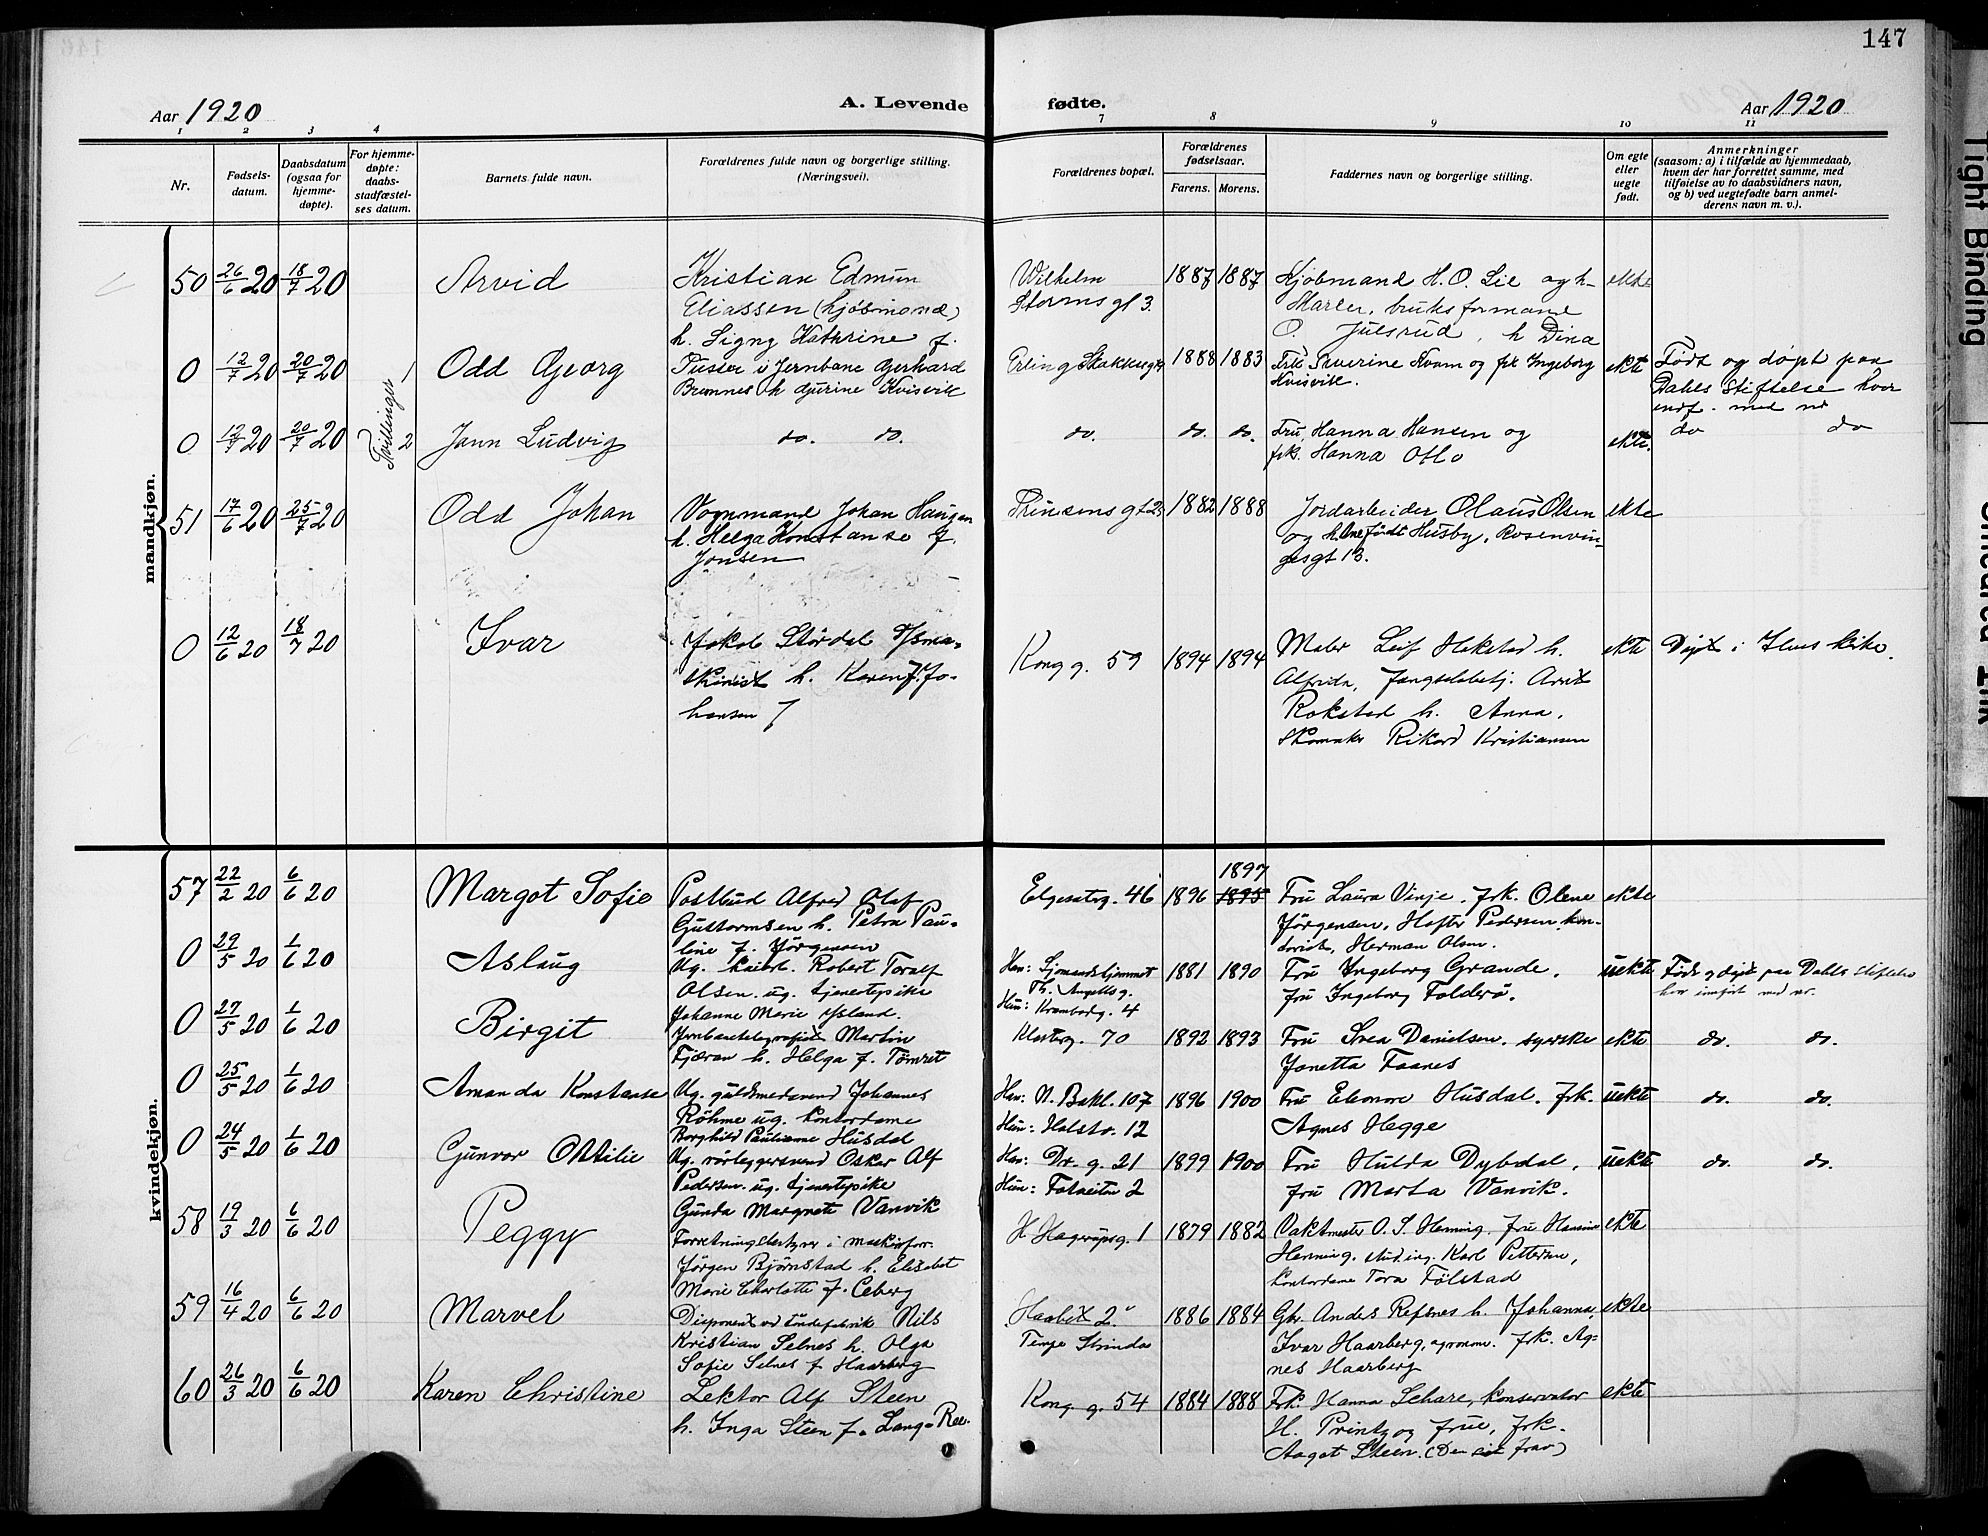 147
Aar 1920 A. Levende fødte. Aar 1920
1 2 3 4 7 8 9 10 11
Nr.
Fødsels-
datum.
Daabsdatum
(ogsaa for
hjemme-
døpte).
For hjemme-
døpte:
daabs-
stadfæstel-
ses datum.
Barnets fulde navn.
Forældrenes fulde navn og borgerlige stilling.
(Næringsvei).
Forældrenes bopæl.
Forældrenes
fødselsaar.
Farens. Morens.
Faddernes navn og borgerlige stilling.
Om egte
eller
uegte
født.
Anmerkninger
(saasom: a) i tilfælde av hjemmedaab,
hvem der har forrettet samme, med
tilføielse av to daabsvidners navn,
og b) ved uegtefødte barn anmel-
derens navn m. v.).
mandkjøn.
50 26/6 20 18/7 20 Arvid
Kristian Edmun
Eliassen (kjøbmand)
h. Signy Kathrine f.
Wilhelm
Storms gt 3.
1887 1887
Kjøbmand H. O. Lie og h.
bruksformand
O. Julsrud, h Dina
ekte
0 12/7 20 20/7 20 Tvillinger 1 Odd Georg
Pusser i Jernbane Gerhard
Brunnes h djurine Kvisvik
Erling Skakkesgt
1888 1883
Frk Severine Kvam og frk Ingeborg
Kvisvik.
ekte
Født og døpt paa
Dahls Stiftelse hvor
indf. med nr
0 12/7 20 20/7 20 2 Jann Ludvig
do. do.
do. do. do.
Fru Hanna Hansen og
frk. Hanna Otto
ekte.
do do
51 17/6 20 25/7 20 Odd Johan
Vognmand Johan Haugen
h. Helga Konstanse f.
Jonsen
1882 1888
Jordarbeider Olaus Olsen
og h. Ane født Husby, Rosenvin-
gesgt 13.
ekte
0 12/6 20 18/7 20 Ivar
Jakob Størdal
h. Karen f. Jo-
hansen
Kong g. 59
1894 1894
Maler Leif Hokstad h.
Alfrida, Fængselsbetj. Arnt
Rokstad h. Anna.
Skomaker Rikard Kristiansen
ekte
Døpt i Ilens kirke.
kvindekjøn.
57 22/2 20 6/6 20 Margot Sofie
Postbud Alfred Olaf
Guttormsen h. Petra Pau-
line f. Jørgensen
Elgesetrg. 46
1896 1897 1895
Fru Laura Vinje. frk. Olene
Jørgensen, Hofter Pedersen, kon-
dorist, Herman Olsen.
ekte
0 29/5 20 1/6 20 Aslaug
Ug. Robert Toralf
Olsen. ug. tjenestepike
Johanne Marie Ysland.
Han: Sjømandshjemmet
Th. Angellsg.
Hun: Krambodg. 4
1881 1890
Fru Ingeborg Grande.
fru Ingeborg Folderø.
uekte
Født og døpt paa Dahls stiftelse
hvor innført med nr.
0 27/5 20 1/6 20 Birgit
Jernbanetelegrafist Martin
Fjæran h. Helga f. Tømret
Klosterg. 70
1892 1893
Fru Svea Danielsen. syerske
Janetta Faanes
ekte
do. do.
0 25/5 20 1/6 20 Amanda Konstanse
Ug. guldsmedsvend Johannes
Röhme ug. kontordame
Borghild Paulianne Husdal
Han: N. Bakl. 107
Hun: Halstr. 12
1896 1900
Fru Eleonore Husdal. frk.
Agnes Hegge
uekte
do. do.
0 24/5 20 1/6 20 Gunvor Ottilie
Ug. rørleggersvend Oskar Alf
Pedersen. ug. tjenestepike
Gunda Margrete Vanvik
Han: Dr. g. 21
Hun: 2
1899 1900
Fru Hulda Dybdal,
fru Marta Vanvik.
uekte
do. do.
58 19/3 20 6/6 20 Peggy
Forretningsbestyrer i maskinforr.
Jørgen Bjørnstad h. Elisabet
Marie Charlotte f. Ceberg
H Hagerupsg. 1
1879 1882
Vaktmester O. S. Herning. fru
Herning. stud ing. Karl Pettersen,
kontordame Tora Følstad
ekte
59 16/4 20 6/6 20 Marvel
Disponent ved tindefabrik Nils
Kristian Selnes h. Olga
Sofie Selnes f. Haarberg
2.
Tempe Strinda
1886 1884
Gbr. Anders Refsnes h. Johanna,
Ivar Haarberg, agronom. frk. Ag-
nes Haarberg
ekte
60 26/3 20 6/6 20 Karen Christine
Lektor Alf Steen
h. Inga Steen f. Lang-Ree.
Kong g. 54
1884 1888
Frk. Hanna Schare, konservator
H. Printz og frue, frk.
Aagot Steen. (Den sist frav)
ekte
Tight Binding